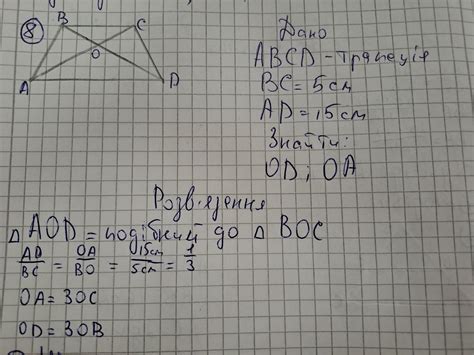 8
B
C
O
A
D
Дано
ABCD - трапеція
BC = 5см
AD = 15см
Знайти:
OD; OA
Розв'язення
△ AOD = подібний до △ BOC
AD/BC = OA/BO = 15см/5см = 1/3
OA = 3OC
OD = 3OB